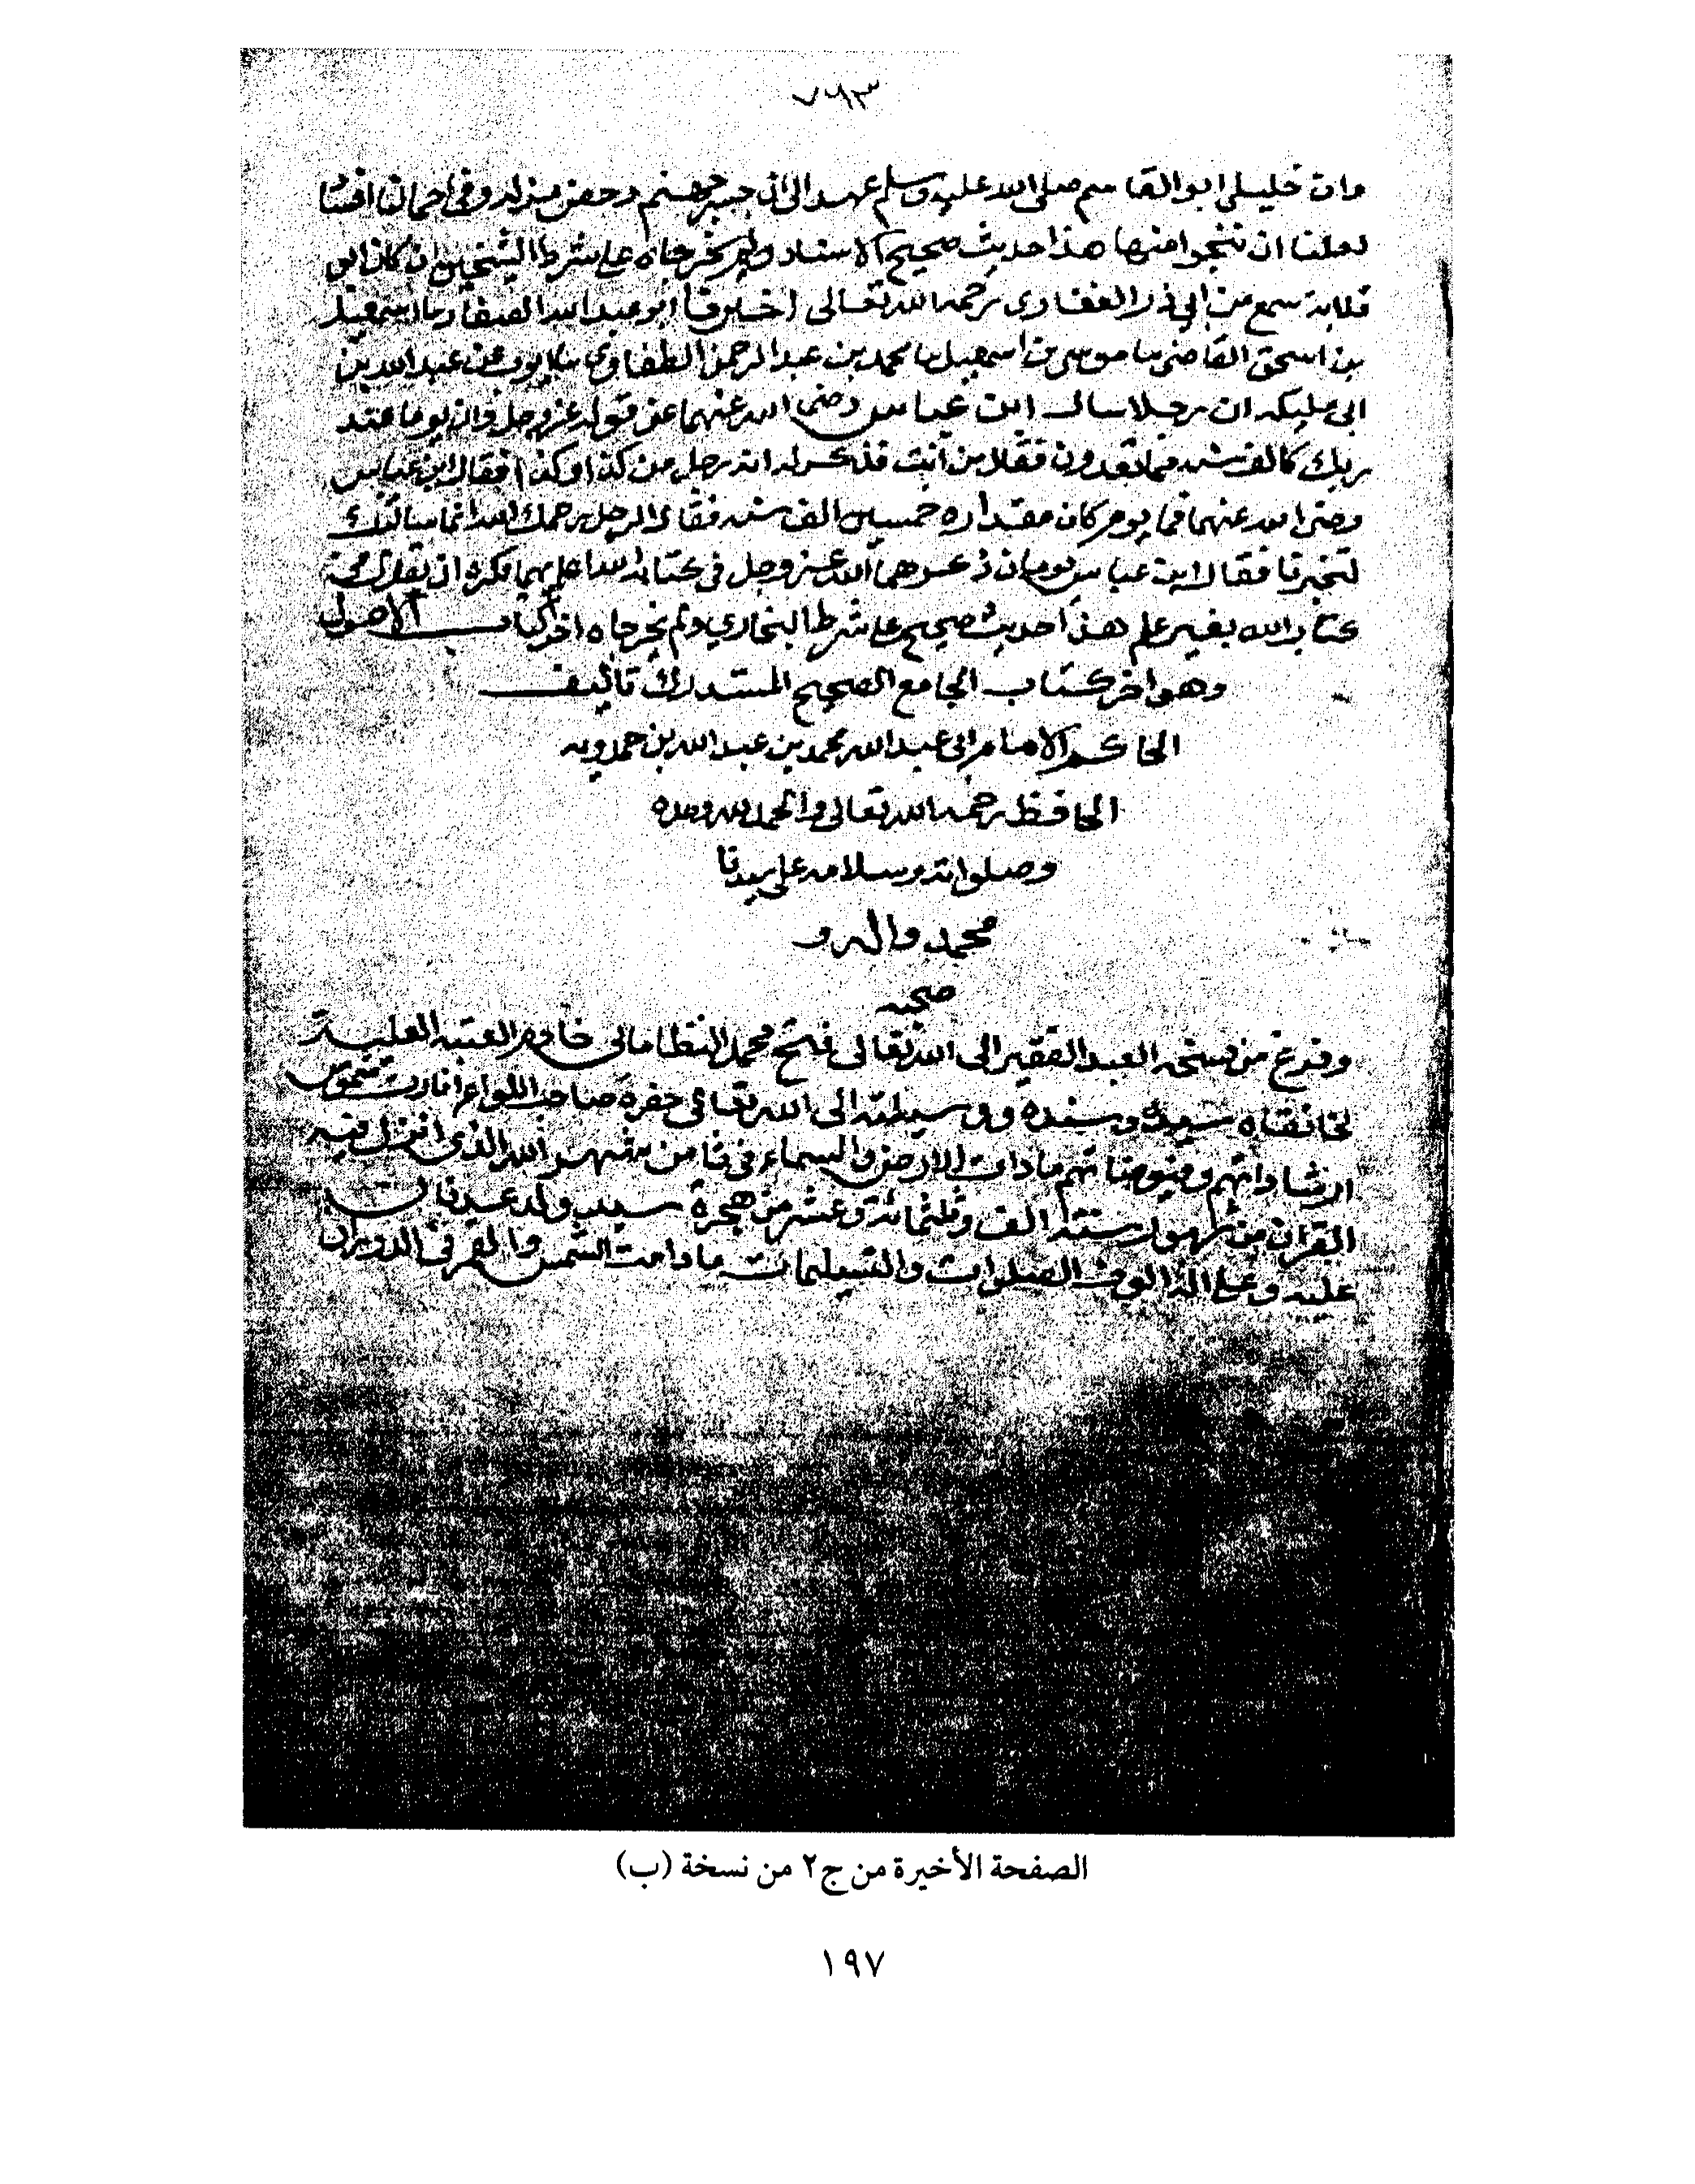 ٧٩٣
وان خليلي ابو القاسم صلى الله عليه وسلم عهد الى ان جسر جهنم دحض مزلة وفي احمالنا اقتدار
لعلنا ان ننجوا منها هذا حديث صحيح الاسناد ولم يخرجاه على شرط الشيخين ان كان ابو
قلابة سمع من ابي ذر الغفاري رحمه الله تعالى اخبرنا ابو عبد الله الصفار ما اسمعيل
بن اسحق القاضي ما موسى بن اسمعيل ما محمد بن عبد الرحمن الطفاوي ما ايوب عن عبد الله بن
ابي مليكه ان رجلا سال ابن عباس رضي الله عنهما عن قوله عز وجل وان يوما عند
ربك كالف سنه مما تعدون فقال من انت فذكر له انه رجل من كذا وكذا فقال ابن عباس
رضى الله عنهما فما يوم كان مقداره خمسين الف سنه فقال الرجل رحمك الله انما سالتك
لتخبرنا فقال ابن عباس يومان ذكرهما الله عز وجل في كتابه الله اعلم بهما فكره ان يقول في
كتاب الله بغير علم هذا حديث صحيح على شرط البخاري ولم يخرجاه اخر كتاب الاهوال
وهو اخر كتاب الجامع الصحيح المستدرك تاليف
الحاكم الامام ابي عبد الله محمد بن عبد الله بن حمدويه
الحافظ رحمه الله تعالى والحمد لله وحده
وصلواته وسلامه على سيدنا
محمد واله و
صحبه
وفرغ من نسخه العبد الفقير الى الله تعالى فتح محمد النظاماني خادم العتبه العلية
لخانقاه سيده وسنده ووسيلته الى الله تعالى حضرة صاحب اللواء انارت شموس
ارشاداتهم وفيوضاتهم مادامت الارض والسماء في ثامن شهر الله الذي انزل فيه
القران من شهور سنة الف وثلثمائة وعشر من هجرة سيد ولد عدنان
عليه وعلى اله الوف الصلوات والتسليمات ما دامت الشمس والقمر في الدوران
الصفحة الأخيرة من ج٢ من نسخة (ب)
١٩٧